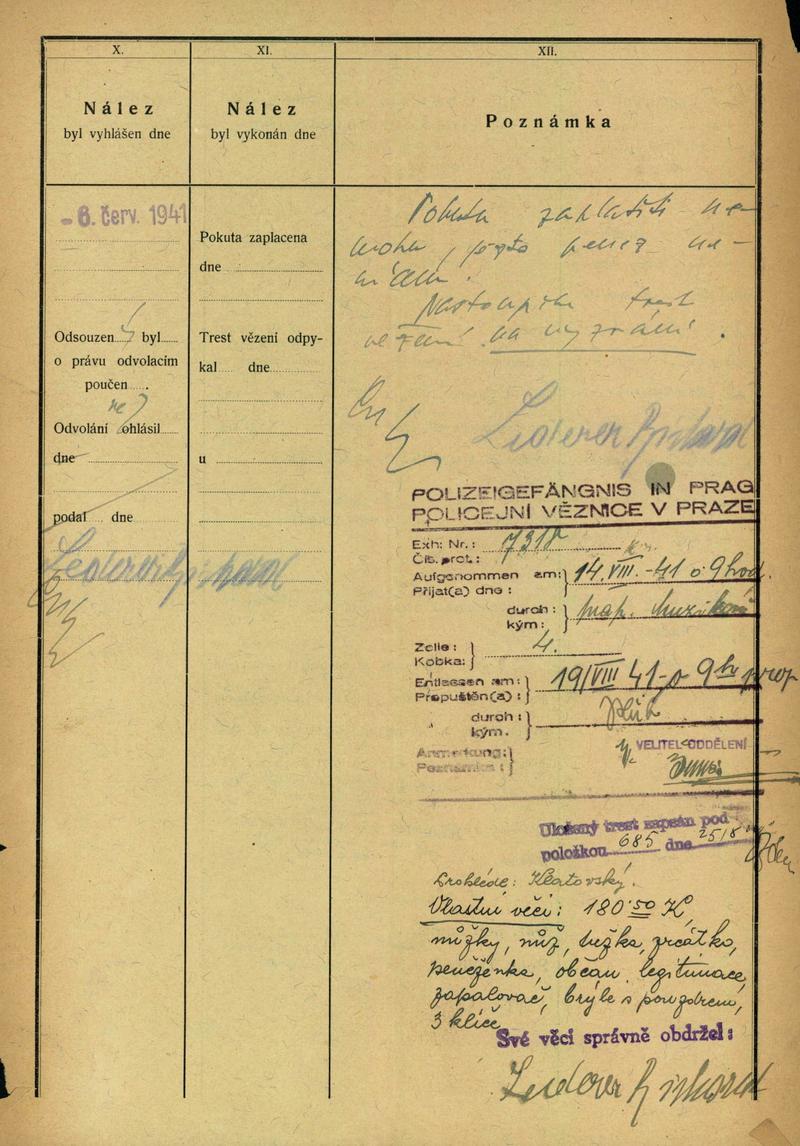 X.
Nález
byl vyhlášen dne
- 6. červ. 1941
Odsouzen byl
o právu odvolacím
poučen
Odvolání ne ohlásil
dne
podal dne
Lederer Richard
XI.
Nález
byl vykonán dne
Pokuta zaplacena
dne
Trest vězení odpy-
kal dne
u
XII.
Poznámka
Pokutu zaplatiti ne-
mohu, peněz ne-
mám.
Nastoupím trest
vězení na vyzvání.
Lederer Richard
POLIZEIGEFÄNGNIS IN PRAG
POLICEJNÍ VĚZNICE V PRAZE
Exh: Nr.: 7318
Čís. prot.:
Aufgenommen am: 14.VIII.-41 o 9 hod.
Přijat(a) dne:
durch:
kým:
Zelle: 4.
Kobka:
Entlassen am: 19/VIII 41-o 9 h
Propuštěn(a):
durch:
kým.
Anmerkung:
Poznámka:
VELITEL ODDĚLENÍ
Uložený trest zapsán pod
položkou 685 dne 25/8
Prohlédl: Klatovský.
Vlastní věci: 180·50 K,
nůžky, nůž, tužka, zrcátko,
peněženka, občan. legitimace,
zapalovač, brýle s pouzdrem,
3 klíče
Své věci správně obdržel:
Lederer Richard